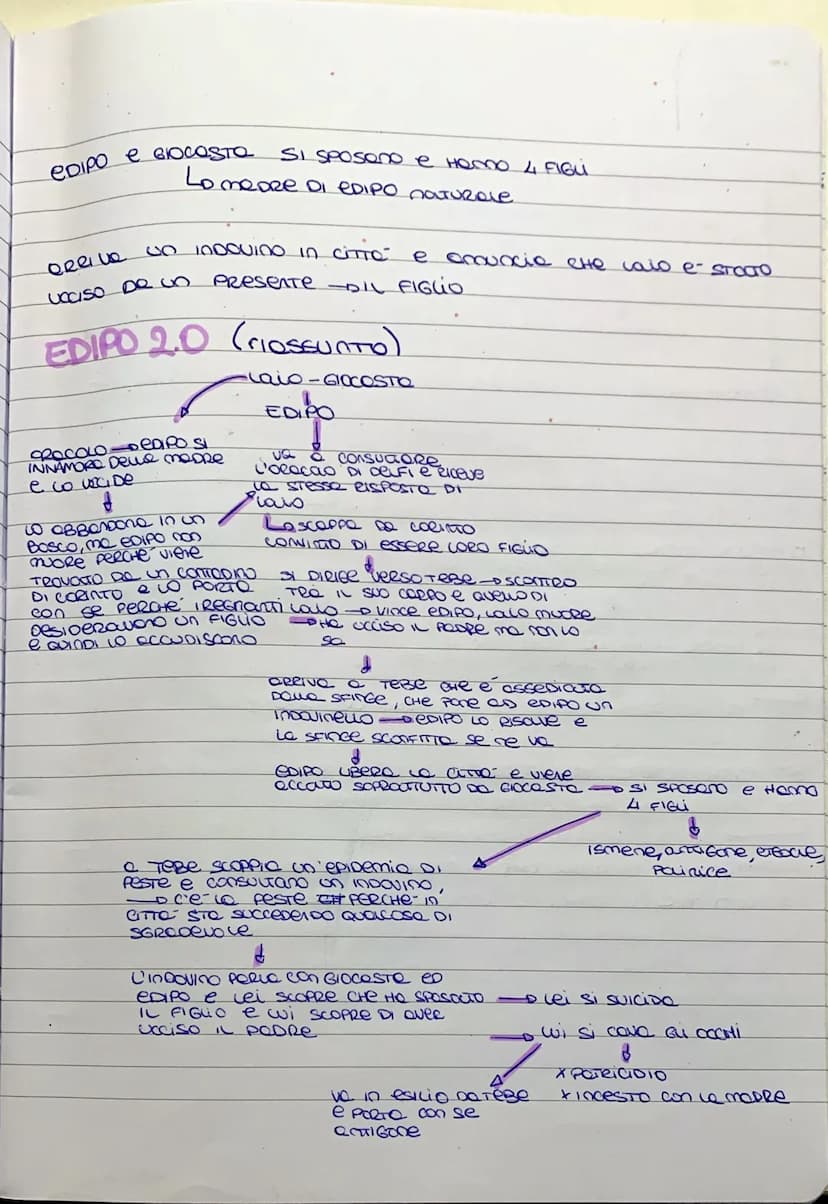 EDIPO E GIOCASTA SI SPOSANO E HANNO 4 FIGLI
LA MADRE DI EDIPO NATURALE
ARRIVA UN INDOVINO IN CITTÀ E ANNUNCIA CHE LAIO È STATO
UCCISO DA UN PRESENTE → IL FIGLIO
EDIPO 2.0 (RIASSUNTO)
LAIO - GIOCASTA
EDIPO
ORACOLO → EDIPO SI
INNAMORA DELLA MADRE
E LO UCCIDE
LO ABBANDONA IN UN
BOSCO, MA EDIPO NON
MUORE PERCHÉ VIENE
TROVATO DA UN CONTADINO
DI CORINTO E LO PORTA
CON SE PERCHÉ I REGNANTI
DESIDERAVANO UN FIGLIO
E QUINDI LO ACCUDISCONO
VA A CONSULTARE
L'ORACOLO DI DELFI E RICEVE
LA STESSA RISPOSTA DI
LAIO
SCAPPA DA CORINTO
CONVINTO DI ESSERE LORO FIGLIO
SI DIRIGE VERSO TEBE → SCONTRO
TRA IL SUO CARRO E QUELLO DI
LAIO → VINCE EDIPO, LAIO MUORE
→ HA UCCISO IL PADRE MA NON LO
SA
ARRIVA A TEBE CHE È ASSEDIATA
DALLA SFINGE, CHE PONE AD EDIPO UN
INDOVINELLO → EDIPO LO RISOLVE E
LA SFINGE SCONFITTA SE NE VA
EDIPO LIBERA LA CITTÀ E VIENE
ACCOLTO SOPRATTUTTO DA GIOCASTA → SI SPOSANO E HANNO
4 FIGLI
ISMENE, ANTIGONE, ETEOCLE,
POLINICE
A TEBE SCOPPIA UN'EPIDEMIA DI
PESTE E CONSULTANO UN INDOVINO,
→ C'È LA PESTE PERCHÉ IN
CITTÀ STA SUCCEDENDO QUALCOSA DI
SGRADEVOLE
L'INDOVINO PARLA CON GIOCASTA ED
EDIPO E LEI SCOPRE CHE HA SPOSATO → LEI SI SUICIDA
IL FIGLIO E LUI SCOPRE DI AVER
UCCISO IL PADRE → LUI SI CAVA GLI OCCHI
X PATRICIDIO
X INCESTO CON LA MADRE
VA IN ESILIO DA TEBE
E PORTA CON SE
ANTIGONE